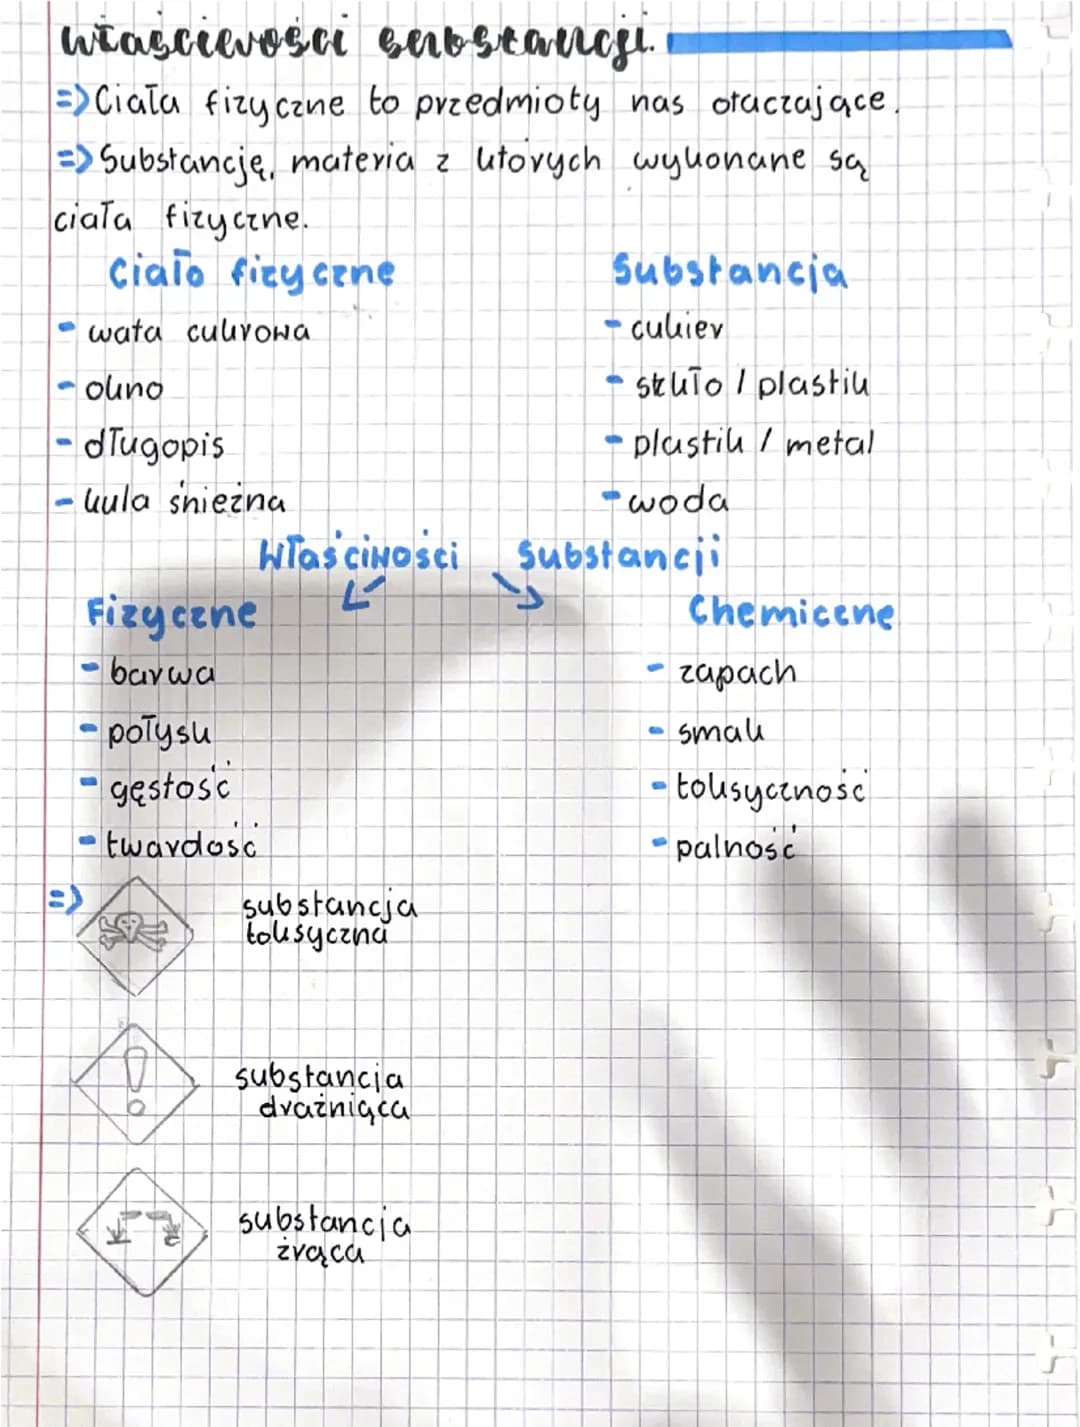 właściwości substancji.
=> Ciała fizyczne to przedmioty nas otaczające.
=> Substancję, materia z których wykonane są
ciała fizyczne.
Ciało fizyczne
Substancja
- wata cukrowa
- cukier
- okno
- szkło / plastik
- długopis
- plastik / metal
- kula śnieżna
- woda
Właściwości Substancji
Fizyczne
Chemiczne
- barwa
- zapach
- połysk
- smak
- gęstość
- toksyczność
- twardość
- palność
=> substancja
toksyczna
!
substancja
drażniąca
substancja
żrąca